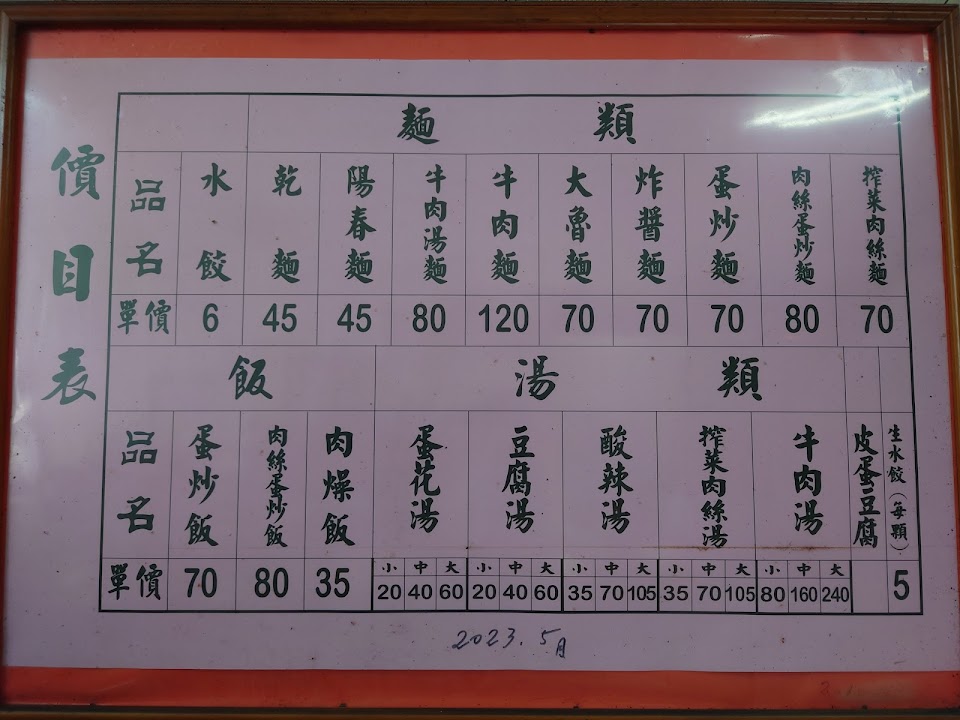 價目表
麵 類
品名 水餃 乾麵 陽春麵 牛肉湯麵 牛肉麵 大魯麵 炸醬麵 蛋炒麵 肉絲蛋炒麵 榨菜肉絲麵
單價 6 45 45 80 120 70 70 70 80 70
飯 湯 類
品名 蛋炒飯 肉絲蛋炒飯 肉燥飯 蛋花湯 豆腐湯 酸辣湯 榨菜肉絲湯 牛肉湯 皮蛋豆腐 生水餃(每顆)
小 中 大 小 中 大 小 中 大 小 中 大 小 中 大
單價 70 80 35 20 40 60 20 40 60 35 70 105 35 70 105 80 160 240 5
2023. 5月